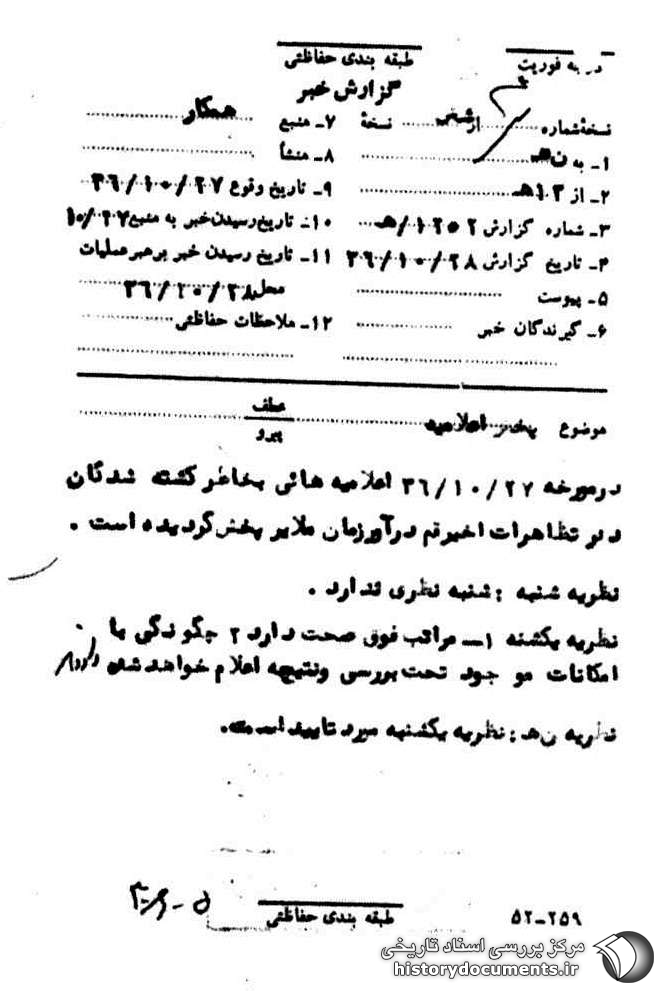 درجه فوریت
طبقه بندی حفاظتی
گزارش خبر
نسخهٔ شماره از نسخهٔ
۷ـ منبع همکار
۱ـ به ن‌هـ
۸ـ منشأ
۲ـ از ۱۲هـ
۹ـ تاریخ وقوع ۳۶/۱۰/۲۷
۳ـ شماره گزارش ۱۲۵۲/هـ
۱۰ـ تاریخ رسیدن خبر به منبع ۱۰/۲۷
۴ـ تاریخ گزارش ۳۶/۱۰/۲۸
۱۱ـ تاریخ رسیدن خبر برهبر عملیات
محل ۳۶/۱۰/۲۸
۵ـ پیوست
۶ـ گیرندگان خبر
۱۲ـ ملاحظات حفاظتی
موضوع پخش اعلامیه
عطف
پیرو
درمورخه ۳۶/۱۰/۲۷ اعلامیه هائی بخاطر کشته شدگان
در تظاهرات اخیر قم درآورزمان ملایر پخش گردیده است .
نظریه شنبه : شنبه نظری ندارد .
نظریه یکشنبه ۱ـ مراتب فوق صحت دارد ۲ چگونگی با
امکانات موجود تحت بررسی ونتیجه اعلام خواهد شد
نظریه ن‌هـ : نظریه یکشنبه مورد تایید است.
طبقه بندی حفاظتی
۵۲-۲۵۹
مرکز بررسی اسناد تاریخی
historydocuments.ir